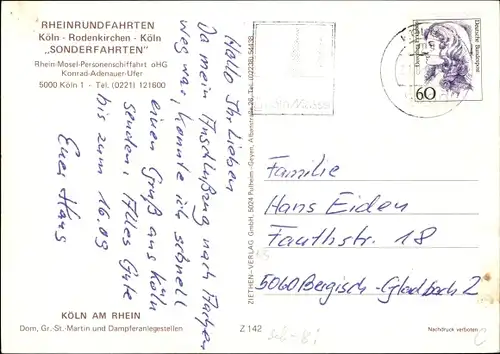 RHEINRUNDFAHRTEN
Köln - Rodenkirchen - Köln
„SONDERFAHRTEN"
Rhein-Mosel-Personenschiffahrt oHG
Konrad-Adenauer-Ufer
5000 Köln 1 - Tel. (0221) 121600
Hallo Ihr Lieben
Da mein Anschlußzug nach Aachen
weg war, konnte ich schnell
einen Gruß aus Köln
senden. Alles Gute
bis zum 16.09
Euer Hans
KÖLN AM RHEIN
Dom, Gr.-St.-Martin und Dampferanlegestellen
ZIETHEN-VERLAG GmbH, 5024 Pulheim-Geyen, Tel. (02238)
Z 142
Deutsche Bundespost
60
Familie
Hans Eiden
Fauthstr. 18
5060 Bergisch-Gladbach 2
Nachdruck verboten